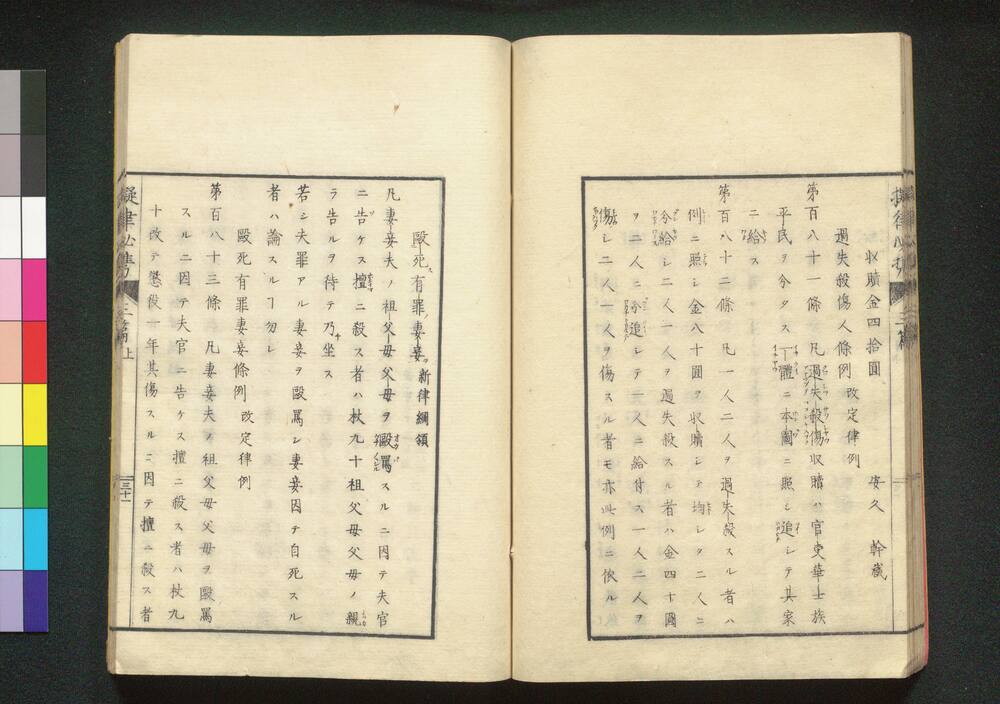 収贖金四拾圓　安久　幹蔵
過失殺傷人條例　改定律例
第百八十一條　凡過失殺傷収贖ハ官吏華士族
平民ヲ分タス一體ニ本圖ニ照シ追シテ其家
ニ給ス
第百八十二條　凡一人二人ヲ過失殺スル者ハ
例ニ照シ金八十圓ヲ収贖シテ均シク二人ニ
分給シ二人一人ヲ過失殺スル者ハ金四十圓
ヲ二人ニ分追シテ一人ニ給付ス一人二人ヲ
傷シ二人一人ヲ傷スル者モ亦此例ニ依ル
毆死有罪妻妾　新律綱領
凡妻妾夫ノ祖父母父母ヲ毆罵スルニ因テ夫官
ニ告ケス擅ニ殺ス者ハ杖九十祖父母父母ノ親
ラ告ルヲ待テ乃坐ス
若シ夫罪アル妻妾ヲ毆罵シ妻妾因テ自死スル
者ハ論スルヿ勿レ
毆死有罪妻妾條例　改定律例
第百八十三條　凡妻妾夫ノ祖父母父母ヲ毆罵
スルニ因テ夫官ニ告ケス擅ニ殺ス者ハ杖九
十改テ懲役一年其傷スルニ因テ擅ニ殺ス者
擬律必携　三篇上　三十一